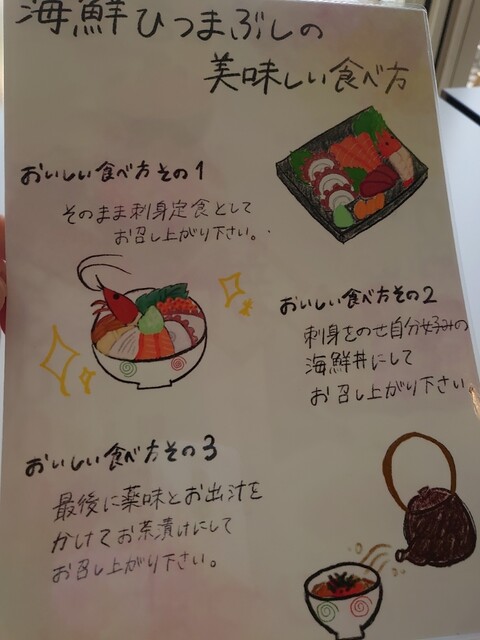 海鮮ひつまぶしの
美味しい食べ方
おいしい食べ方その1
そのまま刺身定食として
お召し上がり下さい。
おいしい食べ方その2
刺身をのせ自分好みの
海鮮丼にして
お召し上がり下さい。
おいしい食べ方その3
最後に薬味とお出汁を
かけてお茶漬けにして
お召し上がり下さい。